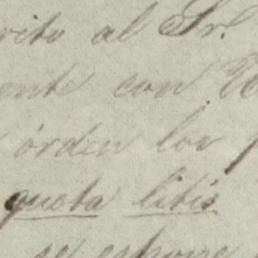 rito al Sr.
ente con
órden los
quota litis
se espone